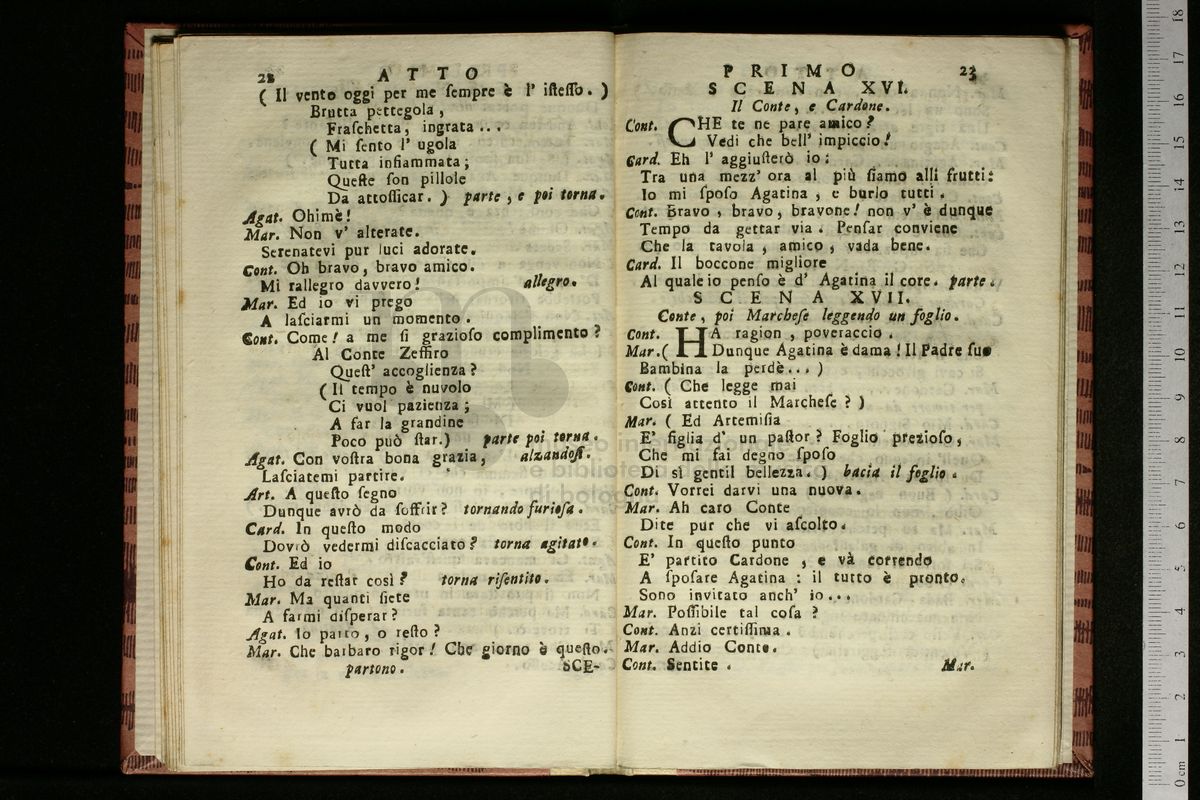 22 ATTO
( Il vento oggi per me ſempre è l' iſteſſo. )
Brutta pettegola,
Fraſchetta, ingrata...
( Mi ſento l' ugola
Tutta infiammata;
Queſte ſon pillole
Da attoſſicar. ) parte, e poi torna.
Agat. Ohimè!
Mar. Non v' alterate.
Serenatevi pur luci adorate.
Cont. Oh bravo, bravo amico.
Mi rallegro davvero! allegro.
Mar. Ed io vi prego
A laſciarmi un momento.
Cont. Come! a me ſi grazioſo complimento?
Al Conte Zeffiro
Queſt' accoglienza?
( Il tempo è nuvolo
Ci vuol pazienza;
A far la grandine
Poco può ſtar.) parte poi torna.
Agat. Con voſtra bona grazia, alzandoſi.
Laſciatemi partire.
Art. A queſto ſegno
Dunque avrò da ſoffrir? tornando furioſa.
Card. In queſto modo
Dovrò vedermi diſcacciato? torna agitato.
Cont. Ed io
Ho da reſtar così? torna riſentito.
Mar. Ma quanti ſiete
A farmi diſperar?
Agat. Io parto, o reſto?
Mar. Che barbaro rigor! Che giorno è queſto.
partono. SCE-
PRIMO 23
SCENA XVI.
Il Conte, e Cardone.
Cont. CHE te ne pare amico?
Vedi che bell' impiccio!
Card. Eh l' aggiuſterò io:
Tra una mezz' ora al più ſiamo alli frutti:
Io mi ſpoſo Agatina, e burlo tutti.
Cont. Bravo, bravo, bravone! non v' è dunque
Tempo da gettar via. Penſar conviene
Che la tavola, amico, vada bene.
Card. Il boccone migliore
Al quale io penſo è d' Agatina il core. parte.
SCENA XVII.
Conte, poi Marcheſe leggendo un foglio.
Cont. HA ragion, poveraccio.
Mar.( Dunque Agatina è dama! Il Padre ſuo
Bambina la perdè... )
Cont. ( Che legge mai
Così attento il Marcheſe? )
Mar. ( Ed Artemiſia
E' figlia d' un paſtor? Foglio prezioſo,
Che mi fai degno ſpoſo
Di sì gentil bellezza. ) bacia il foglio.
Cont. Vorrei darvi una nuova.
Mar. Ah caro Conte
Dite pur che vi aſcolto.
Cont. In queſto punto
E' partito Cardone, e và correndo
A ſpoſare Agatina: il tutto è pronto.
Sono invitato anch' io...
Mar. Poſſibile tal coſa?
Cont. Anzi certiſſima.
Mar. Addio Conte.
Cont. Sentite. Mar.